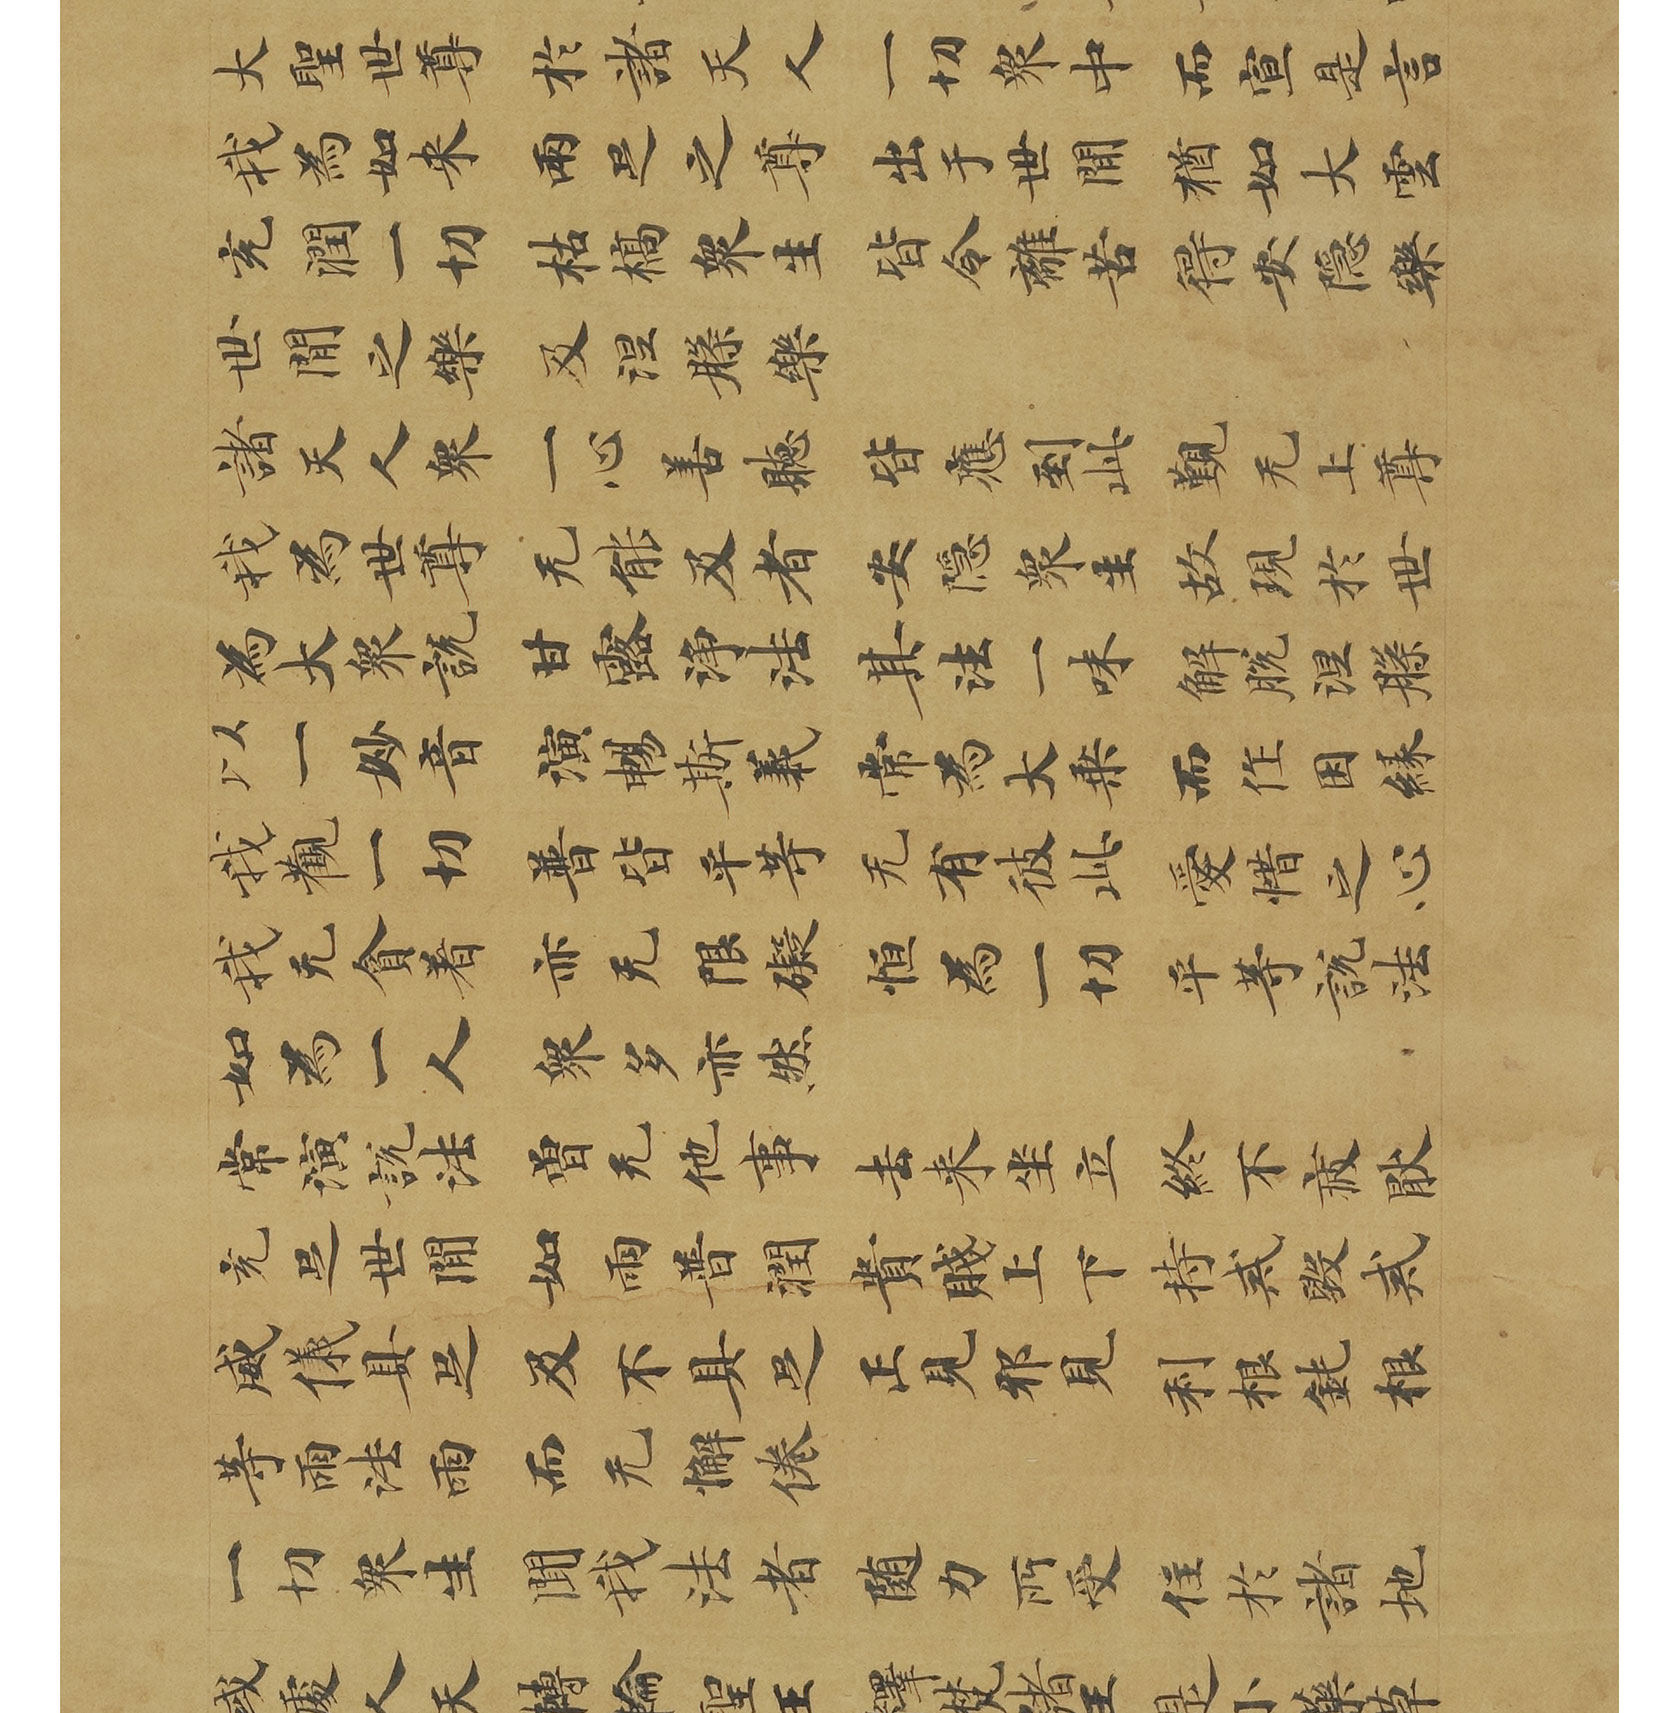 大聖世尊 於諸天人 一切衆中 而宣是言
我為如来 兩足之尊 出于世間 猶如大雲
充潤一切 枯槁衆生 皆令離苦 得安隠樂
世間之樂 及涅槃樂
諸天人衆 一心善聴 皆應到此 覲无上尊
我為世尊 无能及者 安隠衆生 故現於世
為大衆說 甘露浄法 其法一味 解脫涅槃
以一妙音 演暢斯義 常為大乗 而作因縁
我觀一切 普皆平等 无有彼此 愛憎之心
我无貪著 亦无限礙 恒為一切 平等說法
如為一人 衆多亦然
常演說法 曽无他事 去来坐立 終不疲猒
充足世間 如雨普潤 貴賤上下 持戒毀戒
威儀具足 及不具足 正見邪見 利根鈍根
等雨法雨 而无懈倦
一切衆生 聞我法者 随力所受 住於諸地
或處人天 轉輪聖王 釋梵諸王 是小藥草